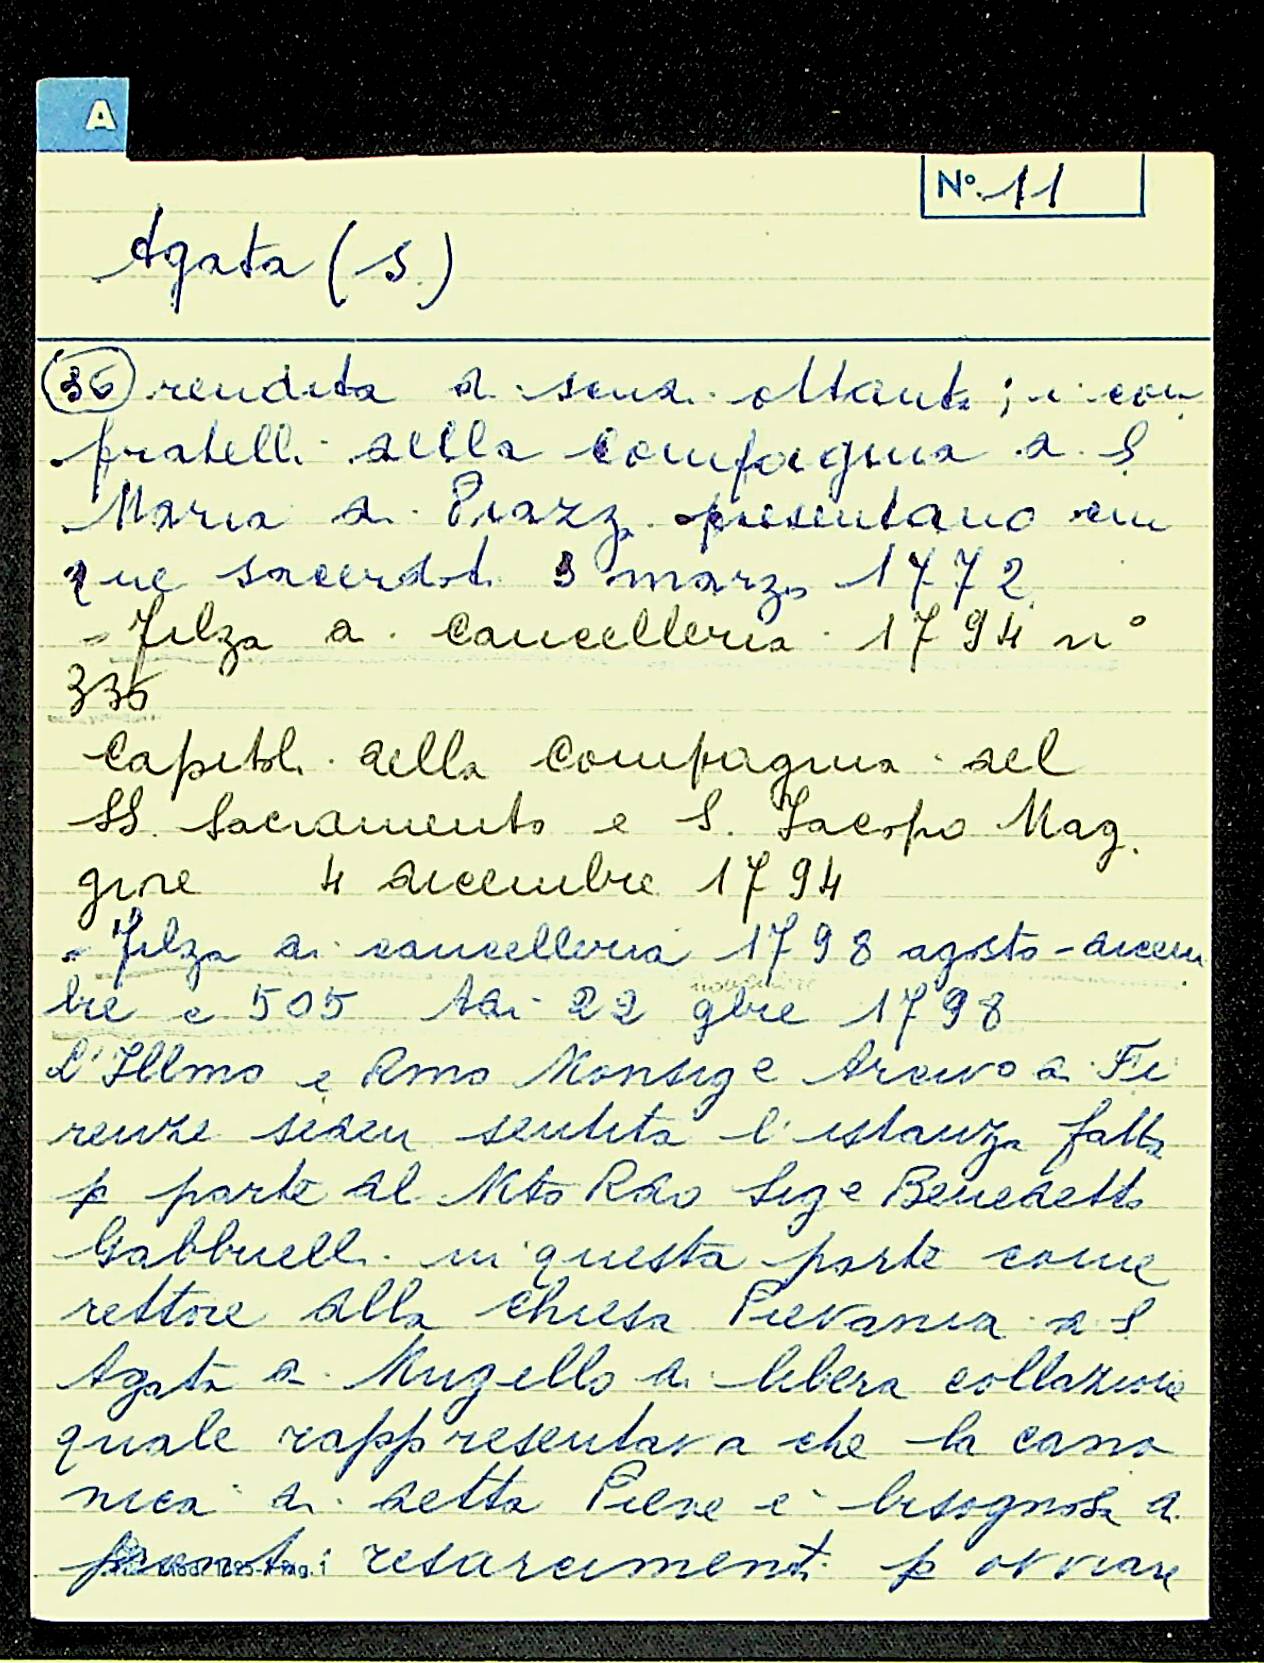 A
N° 11
Agata (S.)
36 rendita di scudi ottanta; i con
fratelli della Compagnia di S.
Maria di Piazza presentano cin
que sacerdoti 3 marzo 1772
- Filza di cancelleria 1794 n°
336
Capitoli della Compagnia del
SS. Sacramento e S. Iacopo Mag.
giore 4 dicembre 1794
- Filza di cancelleria 1798 agosto - dicem
novembre
bre c 505 Adi 22 9bre 1798
L'Illmo e Rmo Monsig e Arcivo di Fi
renze sidem sentita l'istanza fatta
p parte del Mto Rdo Sig e Benedetto
Gabbrielli in questa parte come
rettore della Chiesa Pievania di S
Agata di Mugello di libera collazione
quale rappresentava che la cano
nica di detta Pieve è bisognosa di
pronti resarcimenti p ovviare